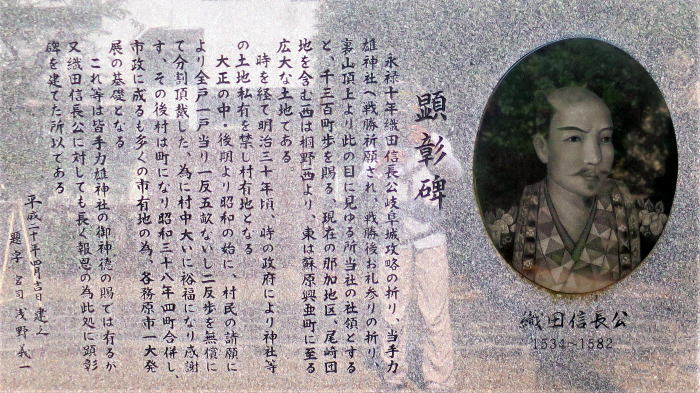 顕彰碑
永禄十年織田信長公岐阜城攻略の折り、当手力
雄神社へ戦勝祈願され、戦勝後お礼参りの折り、
裏山頂上より此の目に見ゆる所当社の社領とする
と、千三百町歩を賜る、現在の那加地区、尾崎団
地を含む西は桐野西より、東は蘇原興亜町に至る
広大な土地である。
時を経て明治三十年頃、時の政府により神社等
の土地私有を禁し村有地となる
大正の中・後期より昭和の始に、村民の請願に
より全戸一戸当り一反五畝ないし二反歩を無償に
て分割頂戴した、為に村中大いに裕福になり感謝
す、その後村は町になり昭和三十八年四町合併し、
市政に成るも多くの市有地の為、各務原市一大発
展の基礎となる
これ等は皆手力雄神社の御神徳の賜では有るが
又織田信長公に対しても長く報恩の為此処に顕彰
碑を建てた所以である
平成二十年四月吉日建之
題字 宮司 浅野義一
織田信長公
1534~1582